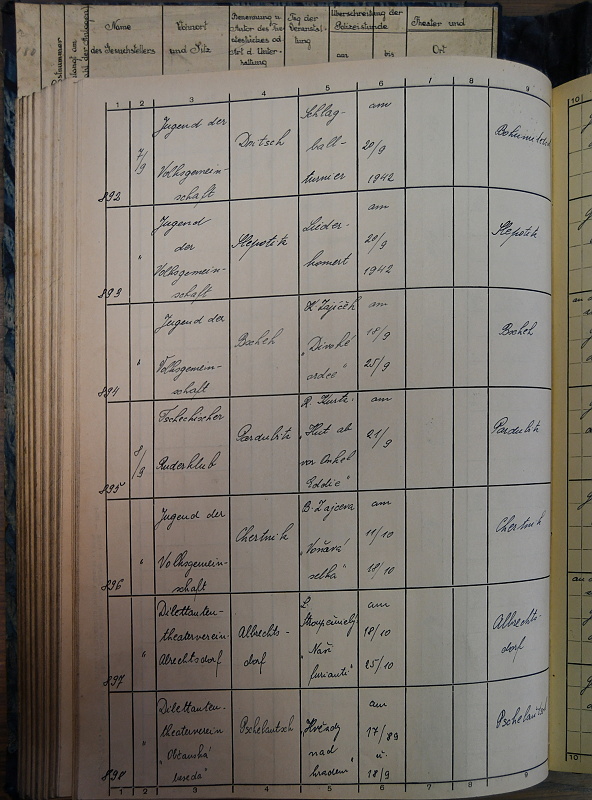 Name
des Gesuchstellers
Wohnort
und Sitz
Benennung u.
Autor des
od.
Art d. Unter-
haltung
Tag der
Veranstal-
tung
Überschreitung der
Polizeistunde
am
bis
Theater und
Ort
1 2 3 4 5 6 7 8 9
10
892
7/9
Jugend der
Volksgemein-
schaft
Doitsch
Schlag-
ball-
turnier
am
20/9
1942
893
"
Jugend
der
Volksgemein-
schaft
Slepotitz
Lieder-
am
20/9
1942
Slepotitz
894
"
Jugend der
Volksgemein-
schaft
Bocheh
K. Zajíček
"Divoké
srdce"
am
18/9
25/9
Bocheh
895
8/9
Tschechischer
Ruderklub
Pardubitz
"Hut ab
vor Onkel
Eddie"
am
21/9
Pardubitz
896
"
Jugend der
Volksgemein-
schaft
Chertnik
"Voňavá
selka"
am
11/10
18/10
Chertnik
897
"
Dilettanten-
theaterverein
Albrechtsdorf
Albrechts-
dorf
L.
Stroupežnický
"Naši
furianti"
am
18/10
25/10
Albrechts-
dorf
898
"
Dilettanten-
theaterverein
"Občanská
beseda"
Pschelautsch
"Hvězdy
nad
hradem"
am
17/
u.
18/9
Pschelautsch
1 2 3 4 5 6 7 8 9
10